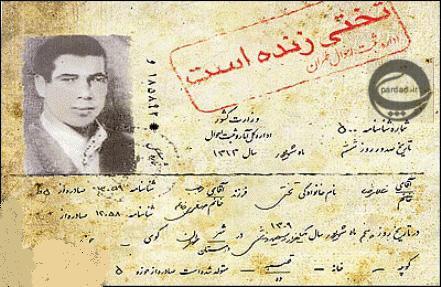 تختی زنده است
اداره ثبت احوال تهران
pardad.ir
وزارت کشور
اداره کل آمار و ثبت احوال
شماره شناسنامه ۵۰۰
تاریخ صدور روز ششم ماه شهریور سال ۱۳۱۳
۱۸۵۸۴۲
آقای غلامرضا نام خانوادگی تختی فرزند آقای رجب شناسنامه صادره از
خانم خانم شناسنامه ۱۳۰۵۸ صادره از
در تاریخ روز پنجم ماه شهریور سال یکهزار و سیصد و نهم ۱۳۰۹ در شهر طهران کوی
کوچه خانه قصبه ده متولد شده است صادره از حوزه ۵